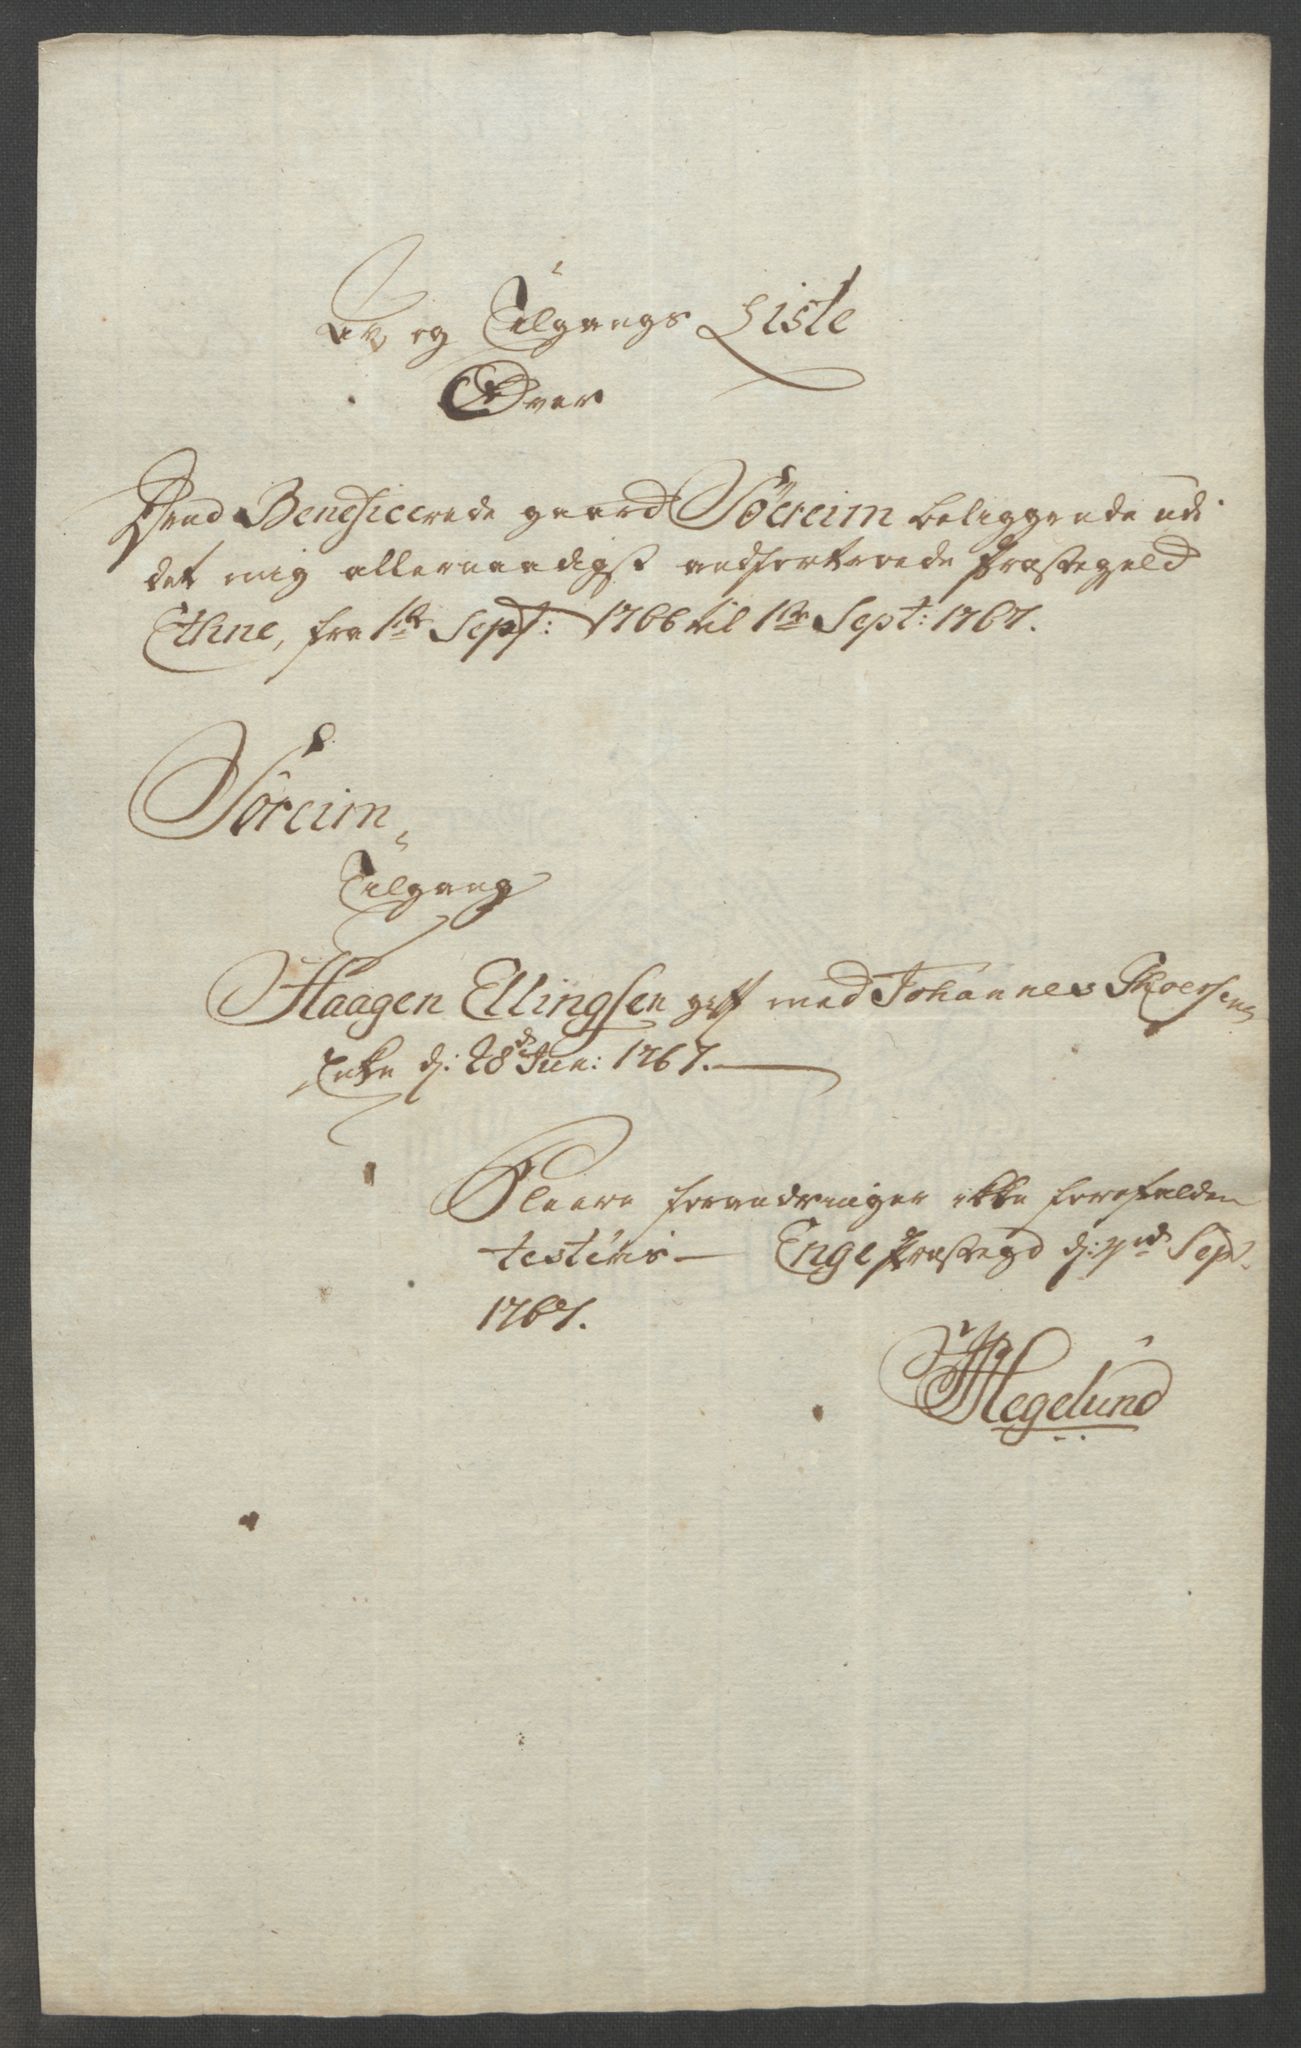 Av og Tilgangs Liste
Over
Dend Beneficerede gaard Söereim beliggende udi
det mig allernaadigst andfortroede Præstegield
Ethne, fra 1te Sept: 1766 til 1te Sept: 1767.
Söreim,
Tilgang
Haagen Ellingsen gift med Johannes Thoersens
Enke d: 28de Jun: 1767.
Fleere forandringer ikke forefalden
testeris Enge Præstegd d: Sept
1767.
Hegelund